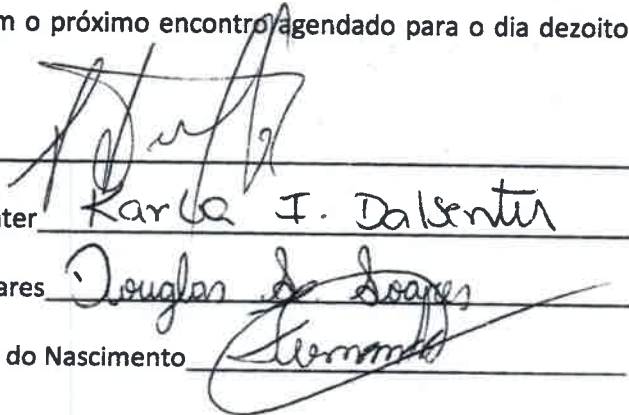 m o próximo encontro agendado para o dia dezoito
nter Karla I. Dalsenter
ares Douglas S. Soares
do Nascimento